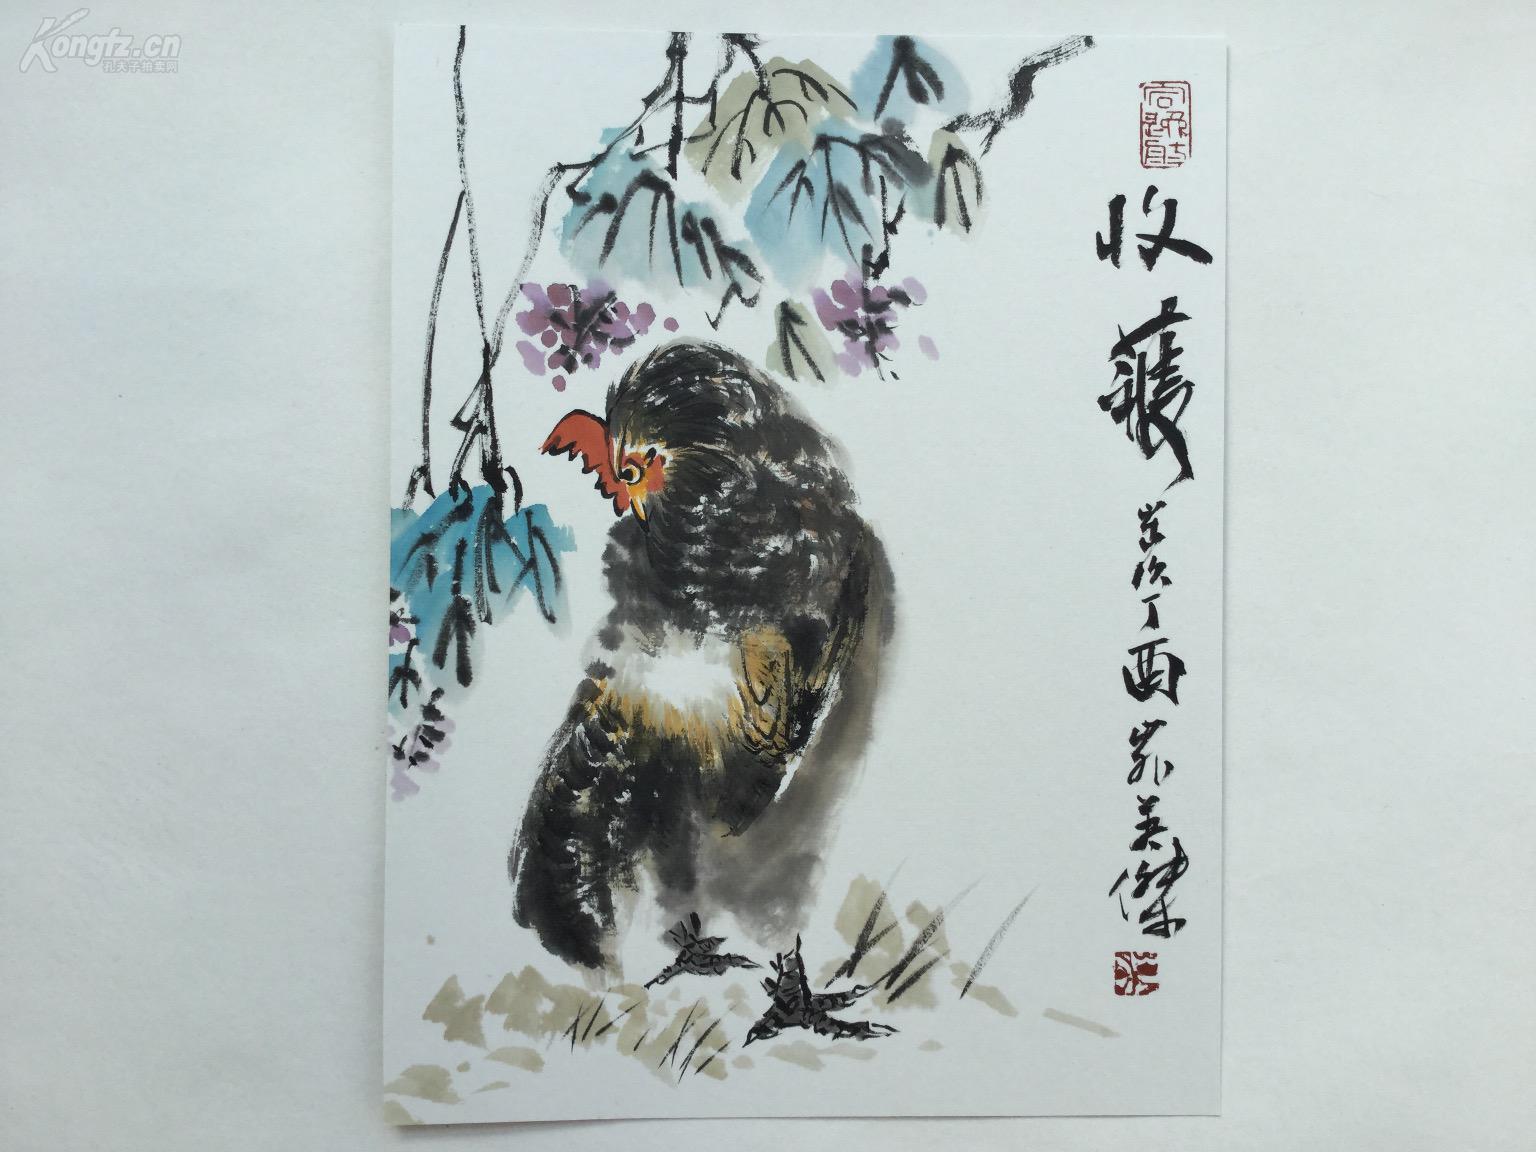 Kongfz.cn
孔夫子拍卖网
收
穫
岁次丁酉
英傑